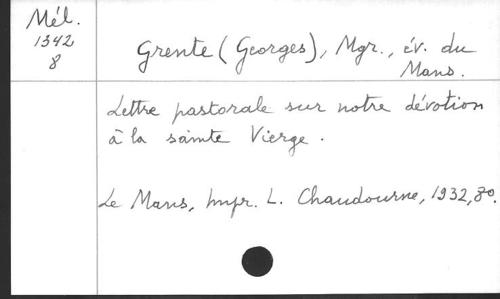 Mél.
1342
8
Grente (Georges), Mgr., év. du
Mans.
Lettre pastorale sur notre dévotion
à la sainte Vierge.
Le Mans, Impr. L. Chaudourne, 1932, 8º.